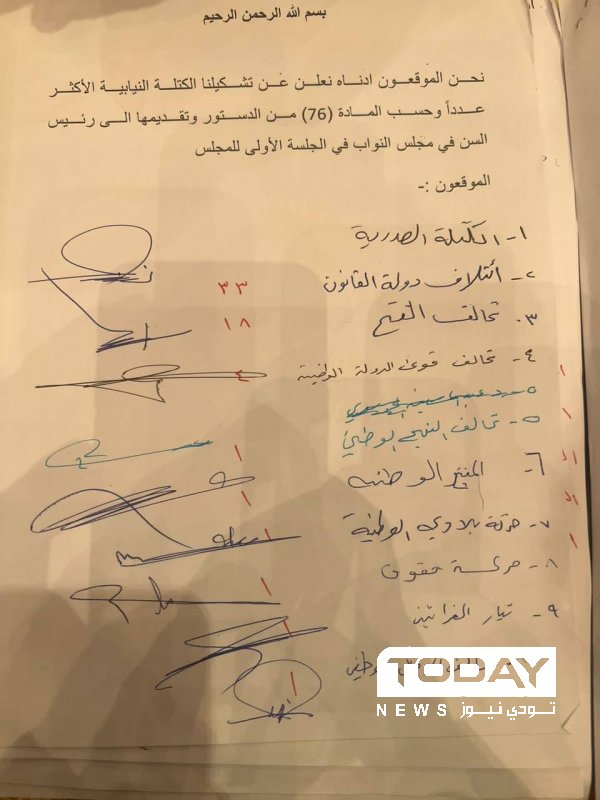 بسم الله الرحمن الرحيم
نحن الموقعون ادناه نعلن عن تشكيلنا الكتلة النيابية الأكثر
عدداً وحسب المادة (76) من الدستور وتقديمها الى رئيس
السن في مجلس النواب في الجلسة الأولى للمجلس
الموقعون :-
١- الكتلة الصدرية
٢- أئتلاف دولة القانون ٣٣
٣. تحالف الفتح ١٨
٤- تحالف قوى الدولة الوطنية ٤
٥- تحالف النهج الوطني ١
٦- المنتج الوطني ١
٧- حركة بلادي الوطنية ١
٨- حركة حقوق ١
٩- تيار الفراتين ١
١
TODAY
NEWS تودي نيوز